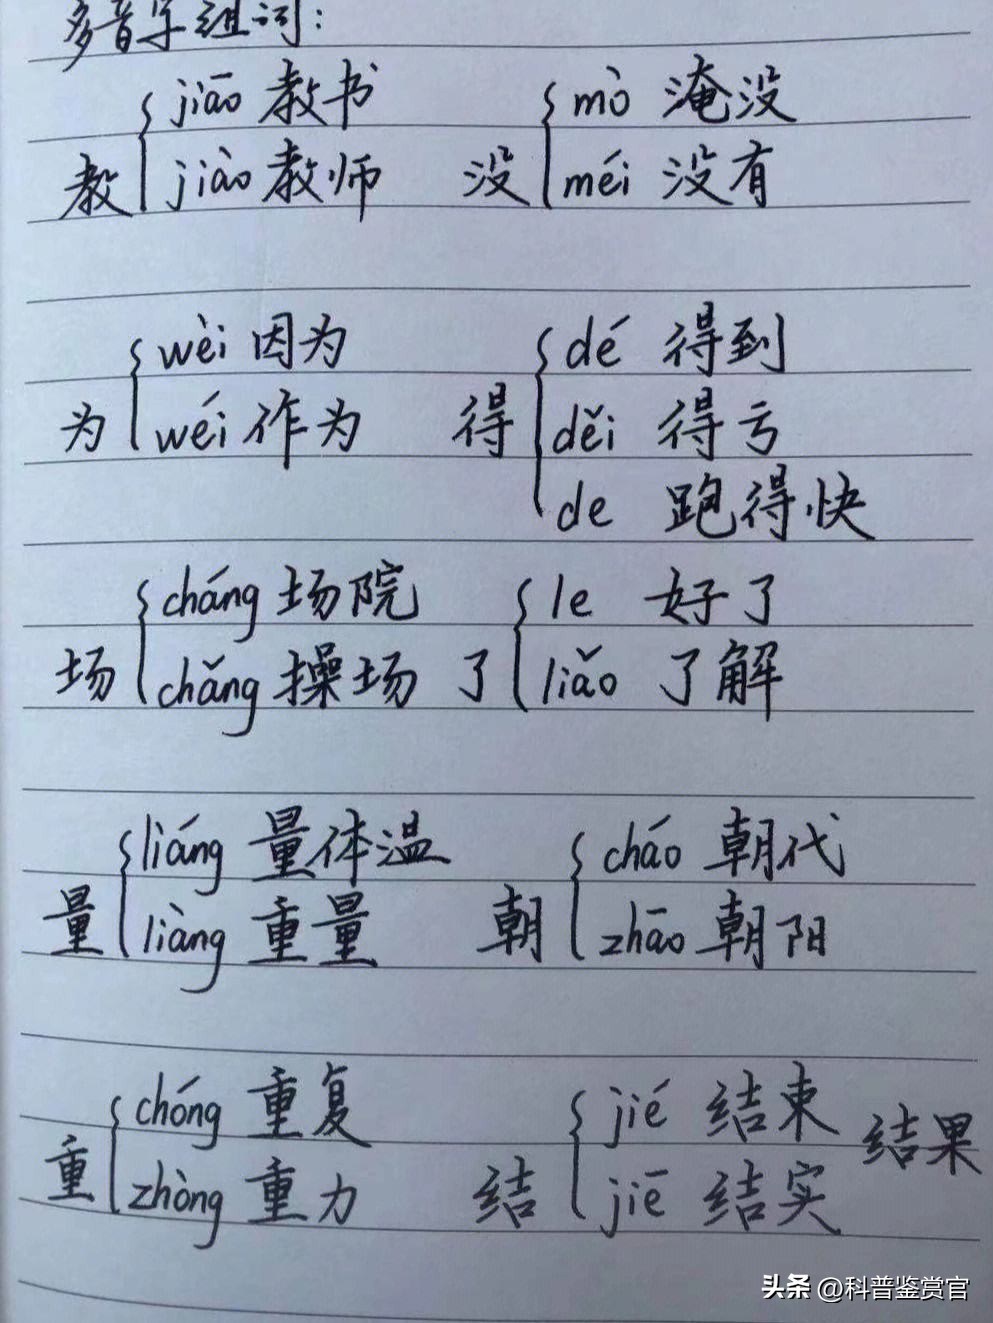 多音字组词：
jiāo 教书 mò 淹没
教 jiào 教师 没 méi 没有
wèi 因为 dé 得到
为 wéi 作为 得 děi 得亏
de 跑得快
cháng 场院 le 好了
场 chǎng 操场 了 liǎo 了解
liáng 量体温 cháo 朝代
量 liàng 重量 朝 zhāo 朝阳
chóng 重复 jié 结束 结果
重 zhòng 重力 结 jiē 结实
头条 @科普鉴赏官